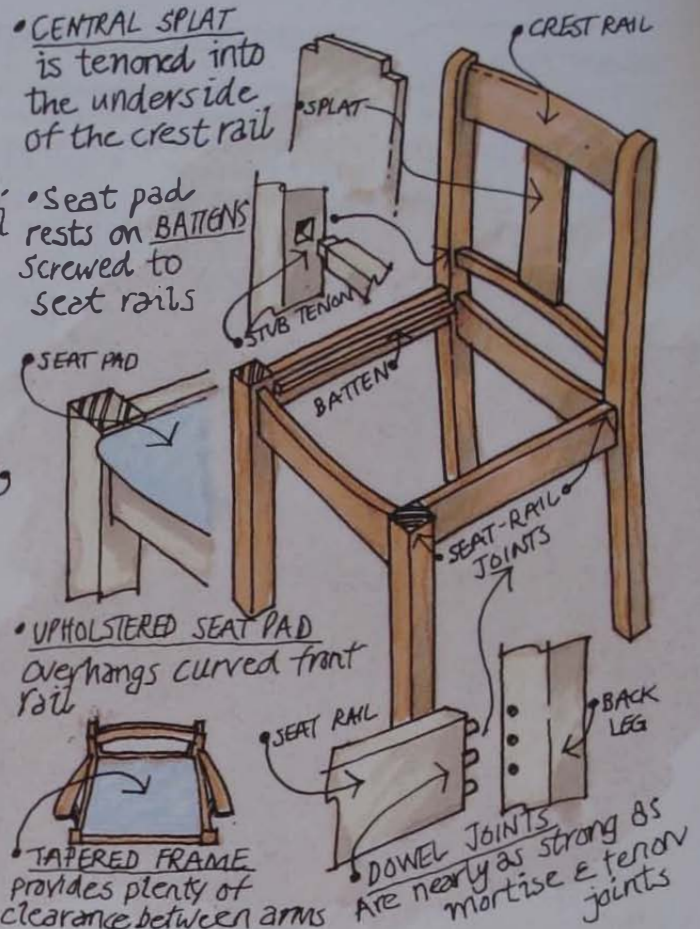 • CENTRAL SPLAT
is tenoned into
the underside
of the crest rail
CREST RAIL
SPLAT
• Seat pad
rests on BATTENS
screwed to
seat rails
STUB TENON
SEAT PAD
BATTEN
SEAT-RAIL
JOINTS
• UPHOLSTERED SEAT PAD
overhangs curved front
rail
SEAT RAIL
BACK
LEG
• TAPERED FRAME
provides plenty of
clearance between arms
• DOWEL JOINTS
Are nearly as strong as
mortise & tenon
joints